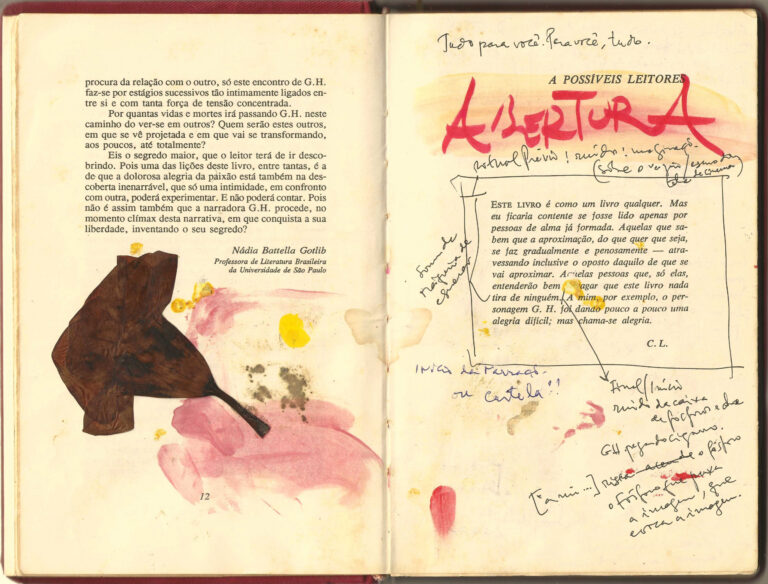 procura da relação com o outro, só este encontro de G.H.
faz-se por estágios sucessivos tão intimamente ligados en-
tre si e com tanta força de tensão concentrada.
Por quantas vidas e mortes irá passando G.H. neste
caminho do ver-se em outros? Quem serão estes outros,
em que se vê projetada e em que vai se transformando,
aos poucos, até totalmente?
Eis o segredo maior, que o leitor terá de ir desco-
brindo. Pois uma das lições deste livro, entre tantas, é a
de que a dolorosa alegria da paixão está também na des-
coberta inenarrável, que só uma intimidade, em confronto
com outra, poderá experimentar. E não poderá contar. Pois
não é assim também que a narradora G.H. procede, no
momento clímax desta narrativa, em que conquista a sua
liberdade, inventando o seu segredo?
Nádia Battella Gotlib
Professora de Literatura Brasileira
da Universidade de São Paulo
12
Tudo para você. Para você, tudo.
A POSSÍVEIS LEITORES
ABERTURA
ruído!
sobre o
ESTE LIVRO é como um livro qualquer. Mas
eu ficaria contente se fosse lido apenas por
pessoas de alma já formada. Aquelas que sa-
bem que a aproximação, do que quer que seja,
se faz gradualmente e penosamente — atra-
vessando inclusive o oposto daquilo de que se
vai aproximar. Aquelas pessoas que, só elas,
entenderão bem devagar que este livro nada
tira de ninguém. A mim, por exemplo, o per-
sonagem G. H. foi dando pouco a pouco uma
alegria difícil; mas chama-se alegria.
C. L.
Som de
máquina de
escrever
Início da Narração
ou cartela!!
Início
ruído de caixa
de fósforos
GH pegando cigarro.
o fósforo
[a mim...]
o fósforo que puxa
a imagem, que
evoca a imagem.